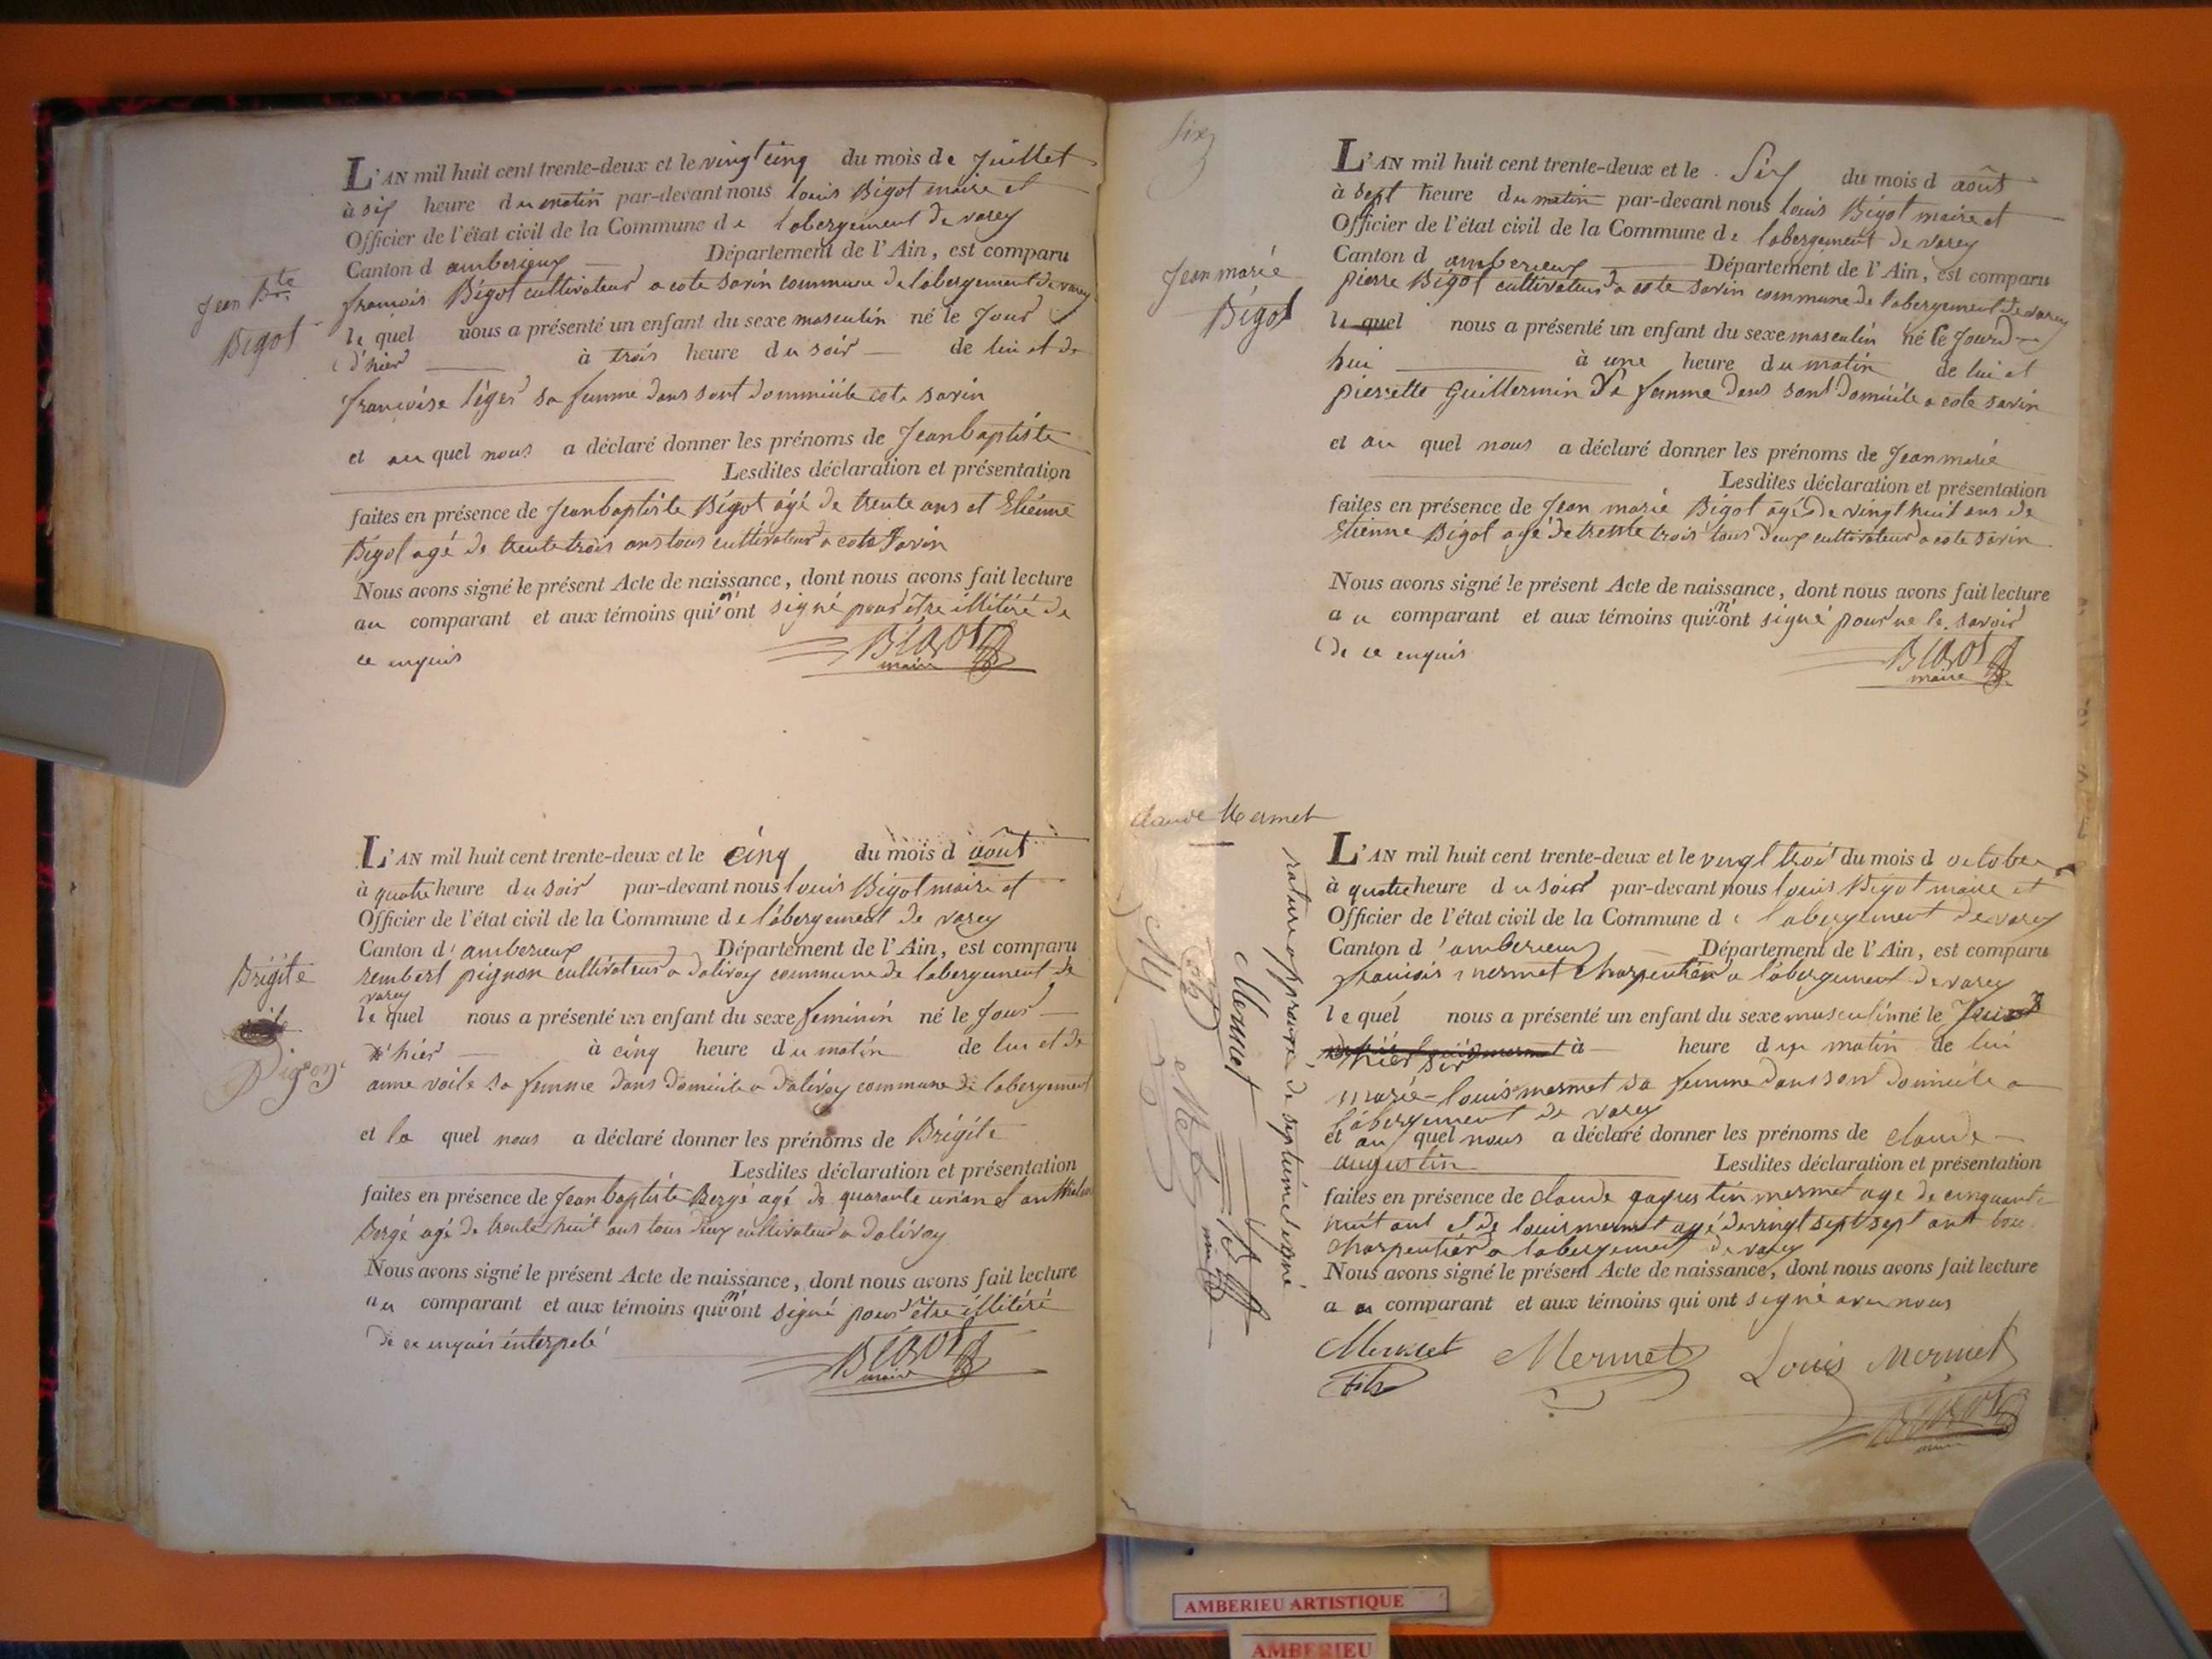 L'AN mil huit cent trente-deux et le vingt cinq du mois de Juillet
à six heure du matin par-devant nous louis Bigot maire et
Officier de l'état civil de la Commune de l'abergement de varey
Canton d amberieux Département de l'Ain, est comparu
Jean Bte
Bigot
francois Bigot cultivateur a cote savin commune de labergement de varey
le quel nous a présenté un enfant du sexe masculin né le Jour
d'hier à trois heure du soir de lui et de
francoise léger sa femme dans sont dommicile cote savin
et au quel nous a déclaré donner les prénoms de Jeanbaptiste
Lesdites déclaration et présentation
faites en présence de Jeanbaptiste Bigot agé de trente ans et Etienne
Bigot agé de trente trois ans tous cultivateur a cote Savin
Nous avons signé le présent Acte de naissance, dont nous avons fait lecture
au comparant et aux témoins qui n'ont signé pour être illitéré de
ce enquis
Bigot
maire
L'AN mil huit cent trente-deux et le cinq du mois d août
à quatre heure du soir par-devant nous louis Bigot maire et
Officier de l'état civil de la Commune de l'abergement de varey
Canton d'amberieux Département de l'Ain, est comparu
Brigite
rembert pignon cultivateur a dalivoy commune de labergement de
varey
le quel nous a présenté un enfant du sexe feminin né le Jour
d'hier à cinq heure du matin de lui et de
anne voile sa femme dans domicile a dalivoy commune de labergement
et la quel nous a déclaré donner les prénoms de Brigite
Lesdites déclaration et présentation
faites en présence de Jean baptiste Bergé agé de quarante un an et
Bergé agé de trente huit ans tous deux cultivateur a dalivoy
Nous avons signé le présent Acte de naissance, dont nous avons fait lecture
au comparant et aux témoins qui n'ont signé pour être illitéré
de ce enquis interpelé
Bigot
maire
Six
L'AN mil huit cent trente-deux et le Six du mois d août
à sept heure du matin par-devant nous louis Bigot maire et
Officier de l'état civil de la Commune de labergement de varey
Canton d amberieux Département de l'Ain, est comparu
Jean marie
Bigot
pierre Bigot cultivateur a cote savin commune de labergement de varey
le quel nous a présenté un enfant du sexe masculin né le Jourd
hui à une heure du matin de lui et
pierrette Guillermin Sa femme dans sont Domicile a cote savin
et au quel nous a déclaré donner les prénoms de Jean marie
Lesdites déclaration et présentation
faites en présence de Jean marie Bigot agé de vingt huit ans de
Etienne Bigot agé de trente trois tous deux cultivateur a cote savin
Nous avons signé le présent Acte de naissance, dont nous avons fait lecture
au comparant et aux témoins qui n'ont signé pour ne le savoir
de ce enquis
Bigot
maire
claude Mermet
rature approuvé
Mermet
L'AN mil huit cent trente-deux et le vingt trois du mois d octobre
à quatre heure du soir par-devant nous louis Bigot maire et
Officier de l'état civil de la Commune de labergement de varey
Canton d'amberieux Département de l'Ain, est comparu
francois mermet charpentier a labergement de varey
le quel nous a présenté un enfant du sexe masculin né le
à heure du matin de lui
marie-louis mermet sa femme dans son domicile a
l'abergement de varey
et au quel nous a déclaré donner les prénoms de claude
augustin Lesdites déclaration et présentation
faites en présence de claude mermet agé de cinquante
huit ant et de louis mermet agé de vingt sept sept ant
charpentier a labergement de varey
Nous avons signé le présent Acte de naissance, dont nous avons fait lecture
au comparant et aux témoins qui ont signé avec nous
Mermet
fils
Mermet
Louis Mermet
Bigot
maire
AMBERIEU ARTISTIQUE
AMBERIEU